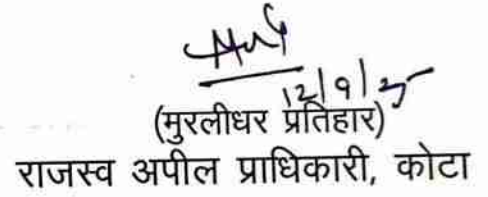 12/9/25
(मुरलीधर प्रतिहार)
राजस्व अपील प्राधिकारी, कोटा